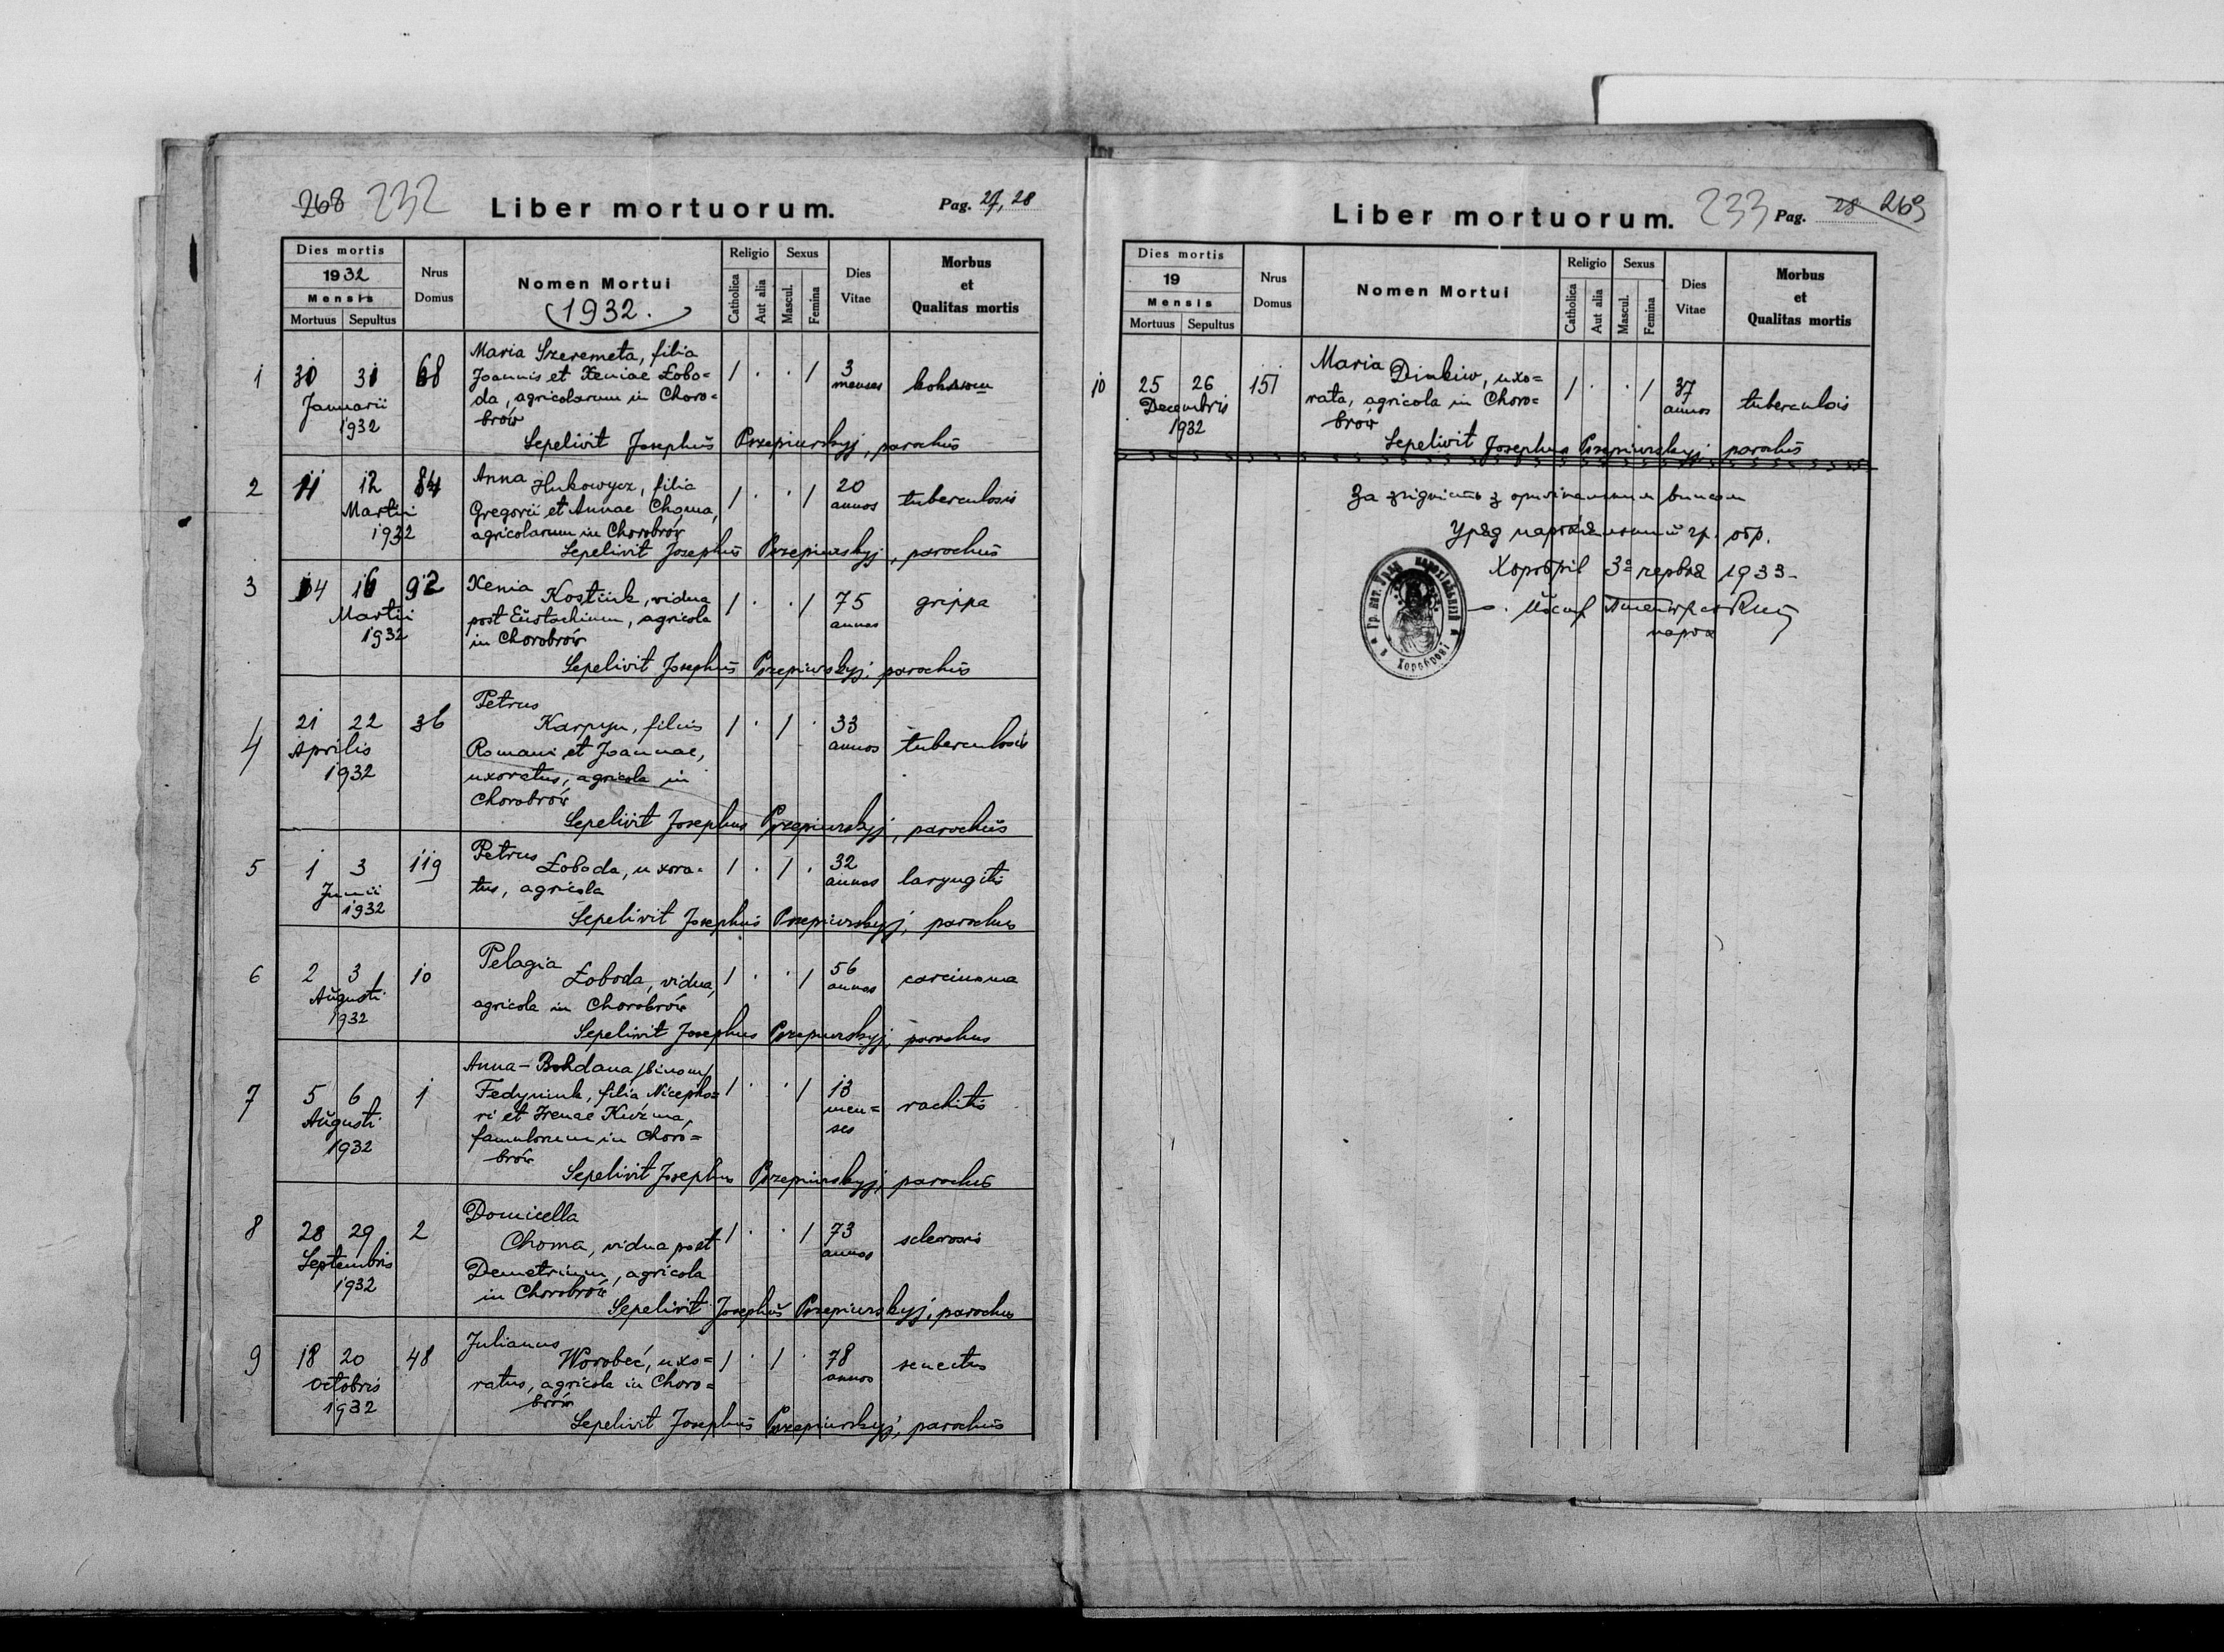 268 232 Liber mortuorum. Pag. 27, 28
Dies mortis
1932
Mensis
Mortuus Sepultus
Nrus
Domus
Nomen Mortui
1932.
Religio
Catholica
Aut alia
Sexus
Mascul.
Femina
Dies
Vitae
Morbus
et
Qualitas mortis
1 30 31 68 Maria Szeremeta, filia
Joannis et Xeniae Łobo=
da, agricolarum in Choro=
brów
Januarii
1932
1 . . 1 3
menses
Sepelivit Josephus Przepiurskyj, parochus
2 11 12 84 Anna Hukowycz, filia
Gregorii et Annae Choma,
agricolarum in Chorobrów
Martii
1932
1 . . 1 20
annos tuberculosis
Sepelivit Josephus Przepiurskyj, parochus
3 14 16 92 Xenia Kostiuk, vidua
post Eustachium, agricola
in Chorobrów
Martii
1932
1 . . 1 75
annos grippa
Sepelivit Josephus Przepiurskyj, parochus
4 21 22 36 Petrus
Karpyn, filius
Romani et Joannae,
uxoratus, agricola in
Chorobrów
Aprilis
1932
1 . 1 . 33
annos tuberculosis
Sepelivit Josephus Przepiurskyj, parochus
5 1 3 119 Petrus Łoboda, uxora=
tus, agricola
Junii
1932
1 . 1 . 32
annos laryngitis
Sepelivit Josephus Przepiurskyj, parochus
6 2 3 10 Pelagia
Łoboda, vidua,
agricola in Chorobrów
Augusti
1932
1 . . 1 56
annos carcinoma
Sepelivit Josephus Przepiurskyj, parochus
7 5 6 1 Anna-Bohdana /binom/
Fedyniuk, filia Nicepho=
ri et Irenae Kuźma,
famulorum in Choro=
brów
Augusti
1932
1 . . 1 13
men=
ses rachitis
Sepelivit Josephus Przepiurskyj, parochus
8 28 29 2 Domicella
Choma, vidua post
Demetrium, agricola
in Chorobrów
Septembris
1932
1 . . 1 73
annos sclerosis
Sepelivit Josephus Przepiurskyj, parochus
9 18 20 48 Julianus
Worobeć, uxo=
ratus, agricola in Choro=
brów
Octobris
1932
1 . 1 . 78
annos senectus
Sepelivit Josephus Przepiurskyj, parochus
Liber mortuorum. 233 Pag. 28 269
Dies mortis
19
Mensis
Mortuus Sepultus
Nrus
Domus
Nomen Mortui
Religio
Catholica
Aut alia
Sexus
Mascul.
Femina
Dies
Vitae
Morbus
et
Qualitas mortis
10 25 26 151 Maria Dinkiw, uxo=
rata, agricola in Choro=
brów
Decembris
1932
1 . . 1 37
annos tuberculosis
Sepelivit Josephus Przepiurskyj, parochus
За згідність з оригінальним виписом
Уряд парохіяльний гр. обр.
Хоробрів 3го червня 1933
Йосиф
парох